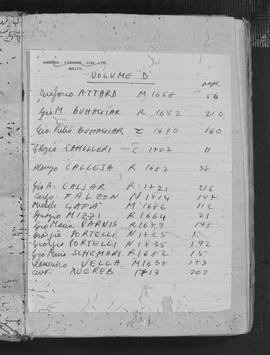 MALTA.
VOLUME D
page
Gregorio ATTARD M 1658 56
Gio M. BUHAGIAR R 1652 210
Gio. Paolo BUHAGIAR C 1690 160
Gligio CAMILLERI C 1707 11
Alonzo CALLEJA R 1687 38
Gio A. CASSAR R 1721 216
Carlo FALZON N 1714 147
Michele GAFÀ M 1686 112
Giorgio MIZZI R 1664 21
Gio Maria PARNIS R 1677 148
Giorgio PORTELLI N 1725
Giorgio PORTELLI N 1735 192
Gio Mario SCHEMBRI R 1682 15
Domenico VELLA M 1638 173
Ant. XUEREB 1713 202